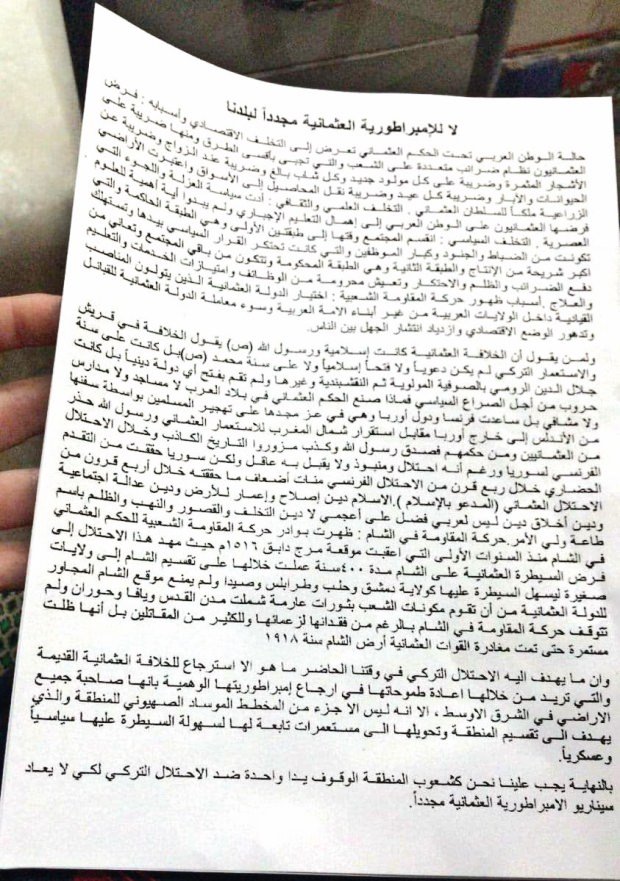 لا للإمبراطورية العثمانية مجدداً لبلدنا
حالة الوطن العربي تحت الحكم العثماني تعرض إلى التخلف الاقتصادي وأسبابه : فرض
العثمانيون نظام ضرائب متعددة على الشعب والتي تجبى بأقسى الطرق ومنها ضريبة على
الأشجار المثمرة وضريبة على كل مولود جديد وكل شاب بالغ وضريبة عند الزواج وضريبة عن
الحيوانات والآبار وضريبة كل عيد وضريبة نقل المحاصيل إلى الأسواق واعتبرت الأراضي
الزراعية ملكاً للسلطان العثماني . التخلف العلمي والثقافي : أدت سياسة العزلة والجوء التي
فرضها العثمانيون على الوطن العربي إلى إهمال التعليم الإجباري ولم يبدوا أية أهمية للعلوم
العصرية . التخلف السياسي : انقسم المجتمع وقتها إلى طبقتين الأولى وهي الطبقة الحاكمة والتي
تكونت من الضباط والجنود وكبار الموظفين والتي كانت تحتكر القرار السياسي بيدها وتستهلك
اكبر شريحة من الإنتاج والطبقة الثانية وهي الطبقة المحكومة وتتكون من باقي المجتمع وتعاني من
دفع الضرائب والظلم والاحتكار وتعيش محرومة من الوظائف وامتيازات الخدمات والتعليم
والعلاج. أسباب ظهور حركة المقاومة الشعبية : اختيار الدولة العثمانية الذين يتولون المناصب
القيادية داخل الولايات العربية من غير أبناء الامة العربية وسوء معاملة الدولة العثمانية للقبائل
وتدهور الوضع الاقتصادي وازدياد انتشار الجهل بين الناس.
ولمن يقول أن الخلافة العثمانية كانت إسلامية ورسول الله (ص) يقول الخلافة في قريش
والاستعمار التركي لم يكن دعوياً ولا فتحاً إسلامياً ولا على سنة محمد (ص)بل كانت على سنة
جلال الدين الرومي بالصوفية المولوية ثم النقشبندية وغيرها ولم تقم بفتح أي دولة دينياً بل كانت
حروب من أجل الصراع السياسي فماذا صنع الحكم العثماني في بلاد العرب لا مساجد ولا مدارس
ولا مشافي بل ساعدت فرنسا ودول أوربا وهي في عز مجدها على تهجير المسلمين بواسطة سفنها
من الأندلس إلى خارج أوربا مقابل استقرار شمال المغرب للاستعمار العثماني ورسول الله حذر
من العثمانيين ومن حكمهم فصدق رسول الله وكذب مزوروا التاريخ الكاذب وخلال الاحتلال
الفرنسي لسوريا ورغم أنه احتلال ومنبوذ ولا يقبل به عاقل ولكن سوريا حققت من التقدم
الحضاري خلال ربع قرن من الاحتلال الفرنسي مئات أضعاف ما حققته خلال أربع قرون من
الاحتلال العثماني (المدعو بالإسلام ).الاسلام دين إصلاح وإعمار للأرض ودين عدالة اجتماعية
ودين أخلاق دين ليس لعربي فضل على أعجمي لا دين التخلف والقصور والنهب والظلم باسم
طاعة ولي الأمر.حركة المقاومة في الشام : ظهرت بوادر حركة المقاومة الشعبية للحكم العثماني
في الشام منذ السنوات الأولى التي أعقبت موقعة مرج دابق ١٥١٦م حيث مهد هذا الاحتلال إلى
فرض السيطرة العثمانية على الشام مدة ٤٠٠سنة عملت خلالها على تقسيم الشام إلى ولايات
صغيرة ليسهل السيطرة عليها كولاية دمشق وحلب وطرابلس وصيدا ولم يمنع موقع الشام المجاور
للدولة العثمانية من أن تقوم مكونات الشعب بثورات عارمة شملت مدن القدس ويافا وحوران ولم
تتوقف حركة المقاومة في الشام بالرغم من فقدانها لزعمائها وللكثير من المقاتلين بل أنها ظلت
مستمرة حتى تمت مغادرة القوات العثمانية أرض الشام سنة ١٩١٨
وان ما يهدف اليه الاحتلال التركي في وقتنا الحاضر ما هو الا استرجاع للخلافة العثمانية القديمة
والتي تريد من خلالها اعادة طموحاتها في ارجاع إمبراطوريتها الوهمية بانها صاحبة جميع
الاراضي في الشرق الاوسط ، الا انه ليس الا جزء من المخطط الموساد الصهيوني للمنطقة والذي
يهدف الى تقسيم المنطقة وتحويلها الى مستعمرات تابعة لها لسهولة السيطرة عليها سياسياً
وعسكرياً.
بالنهاية يجب علينا نحن كشعوب المنطقة الوقوف يدا واحدة ضد الاحتلال التركي لكي لا يعاد
سيناريو الامبراطورية العثمانية مجدداً.